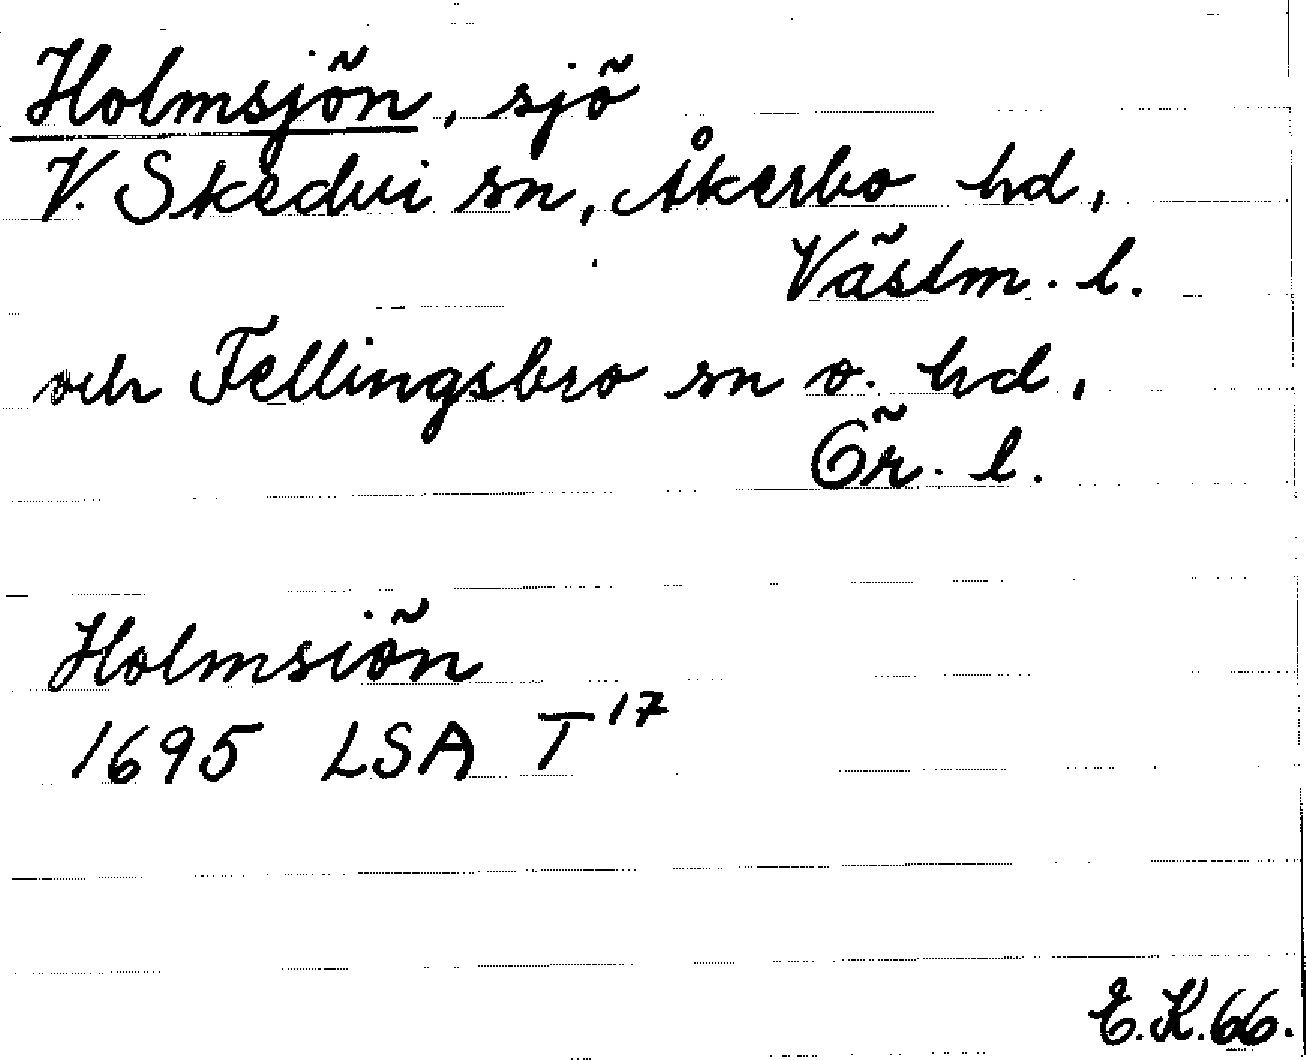 Holmsjön, sjö
V. Skedvi sn, Åkerbo hd,
Västm. l.
och Fellingsbro sn o. hd,
Ör. l.
Holmsiön
1695 LSA T 17
E.K.66.